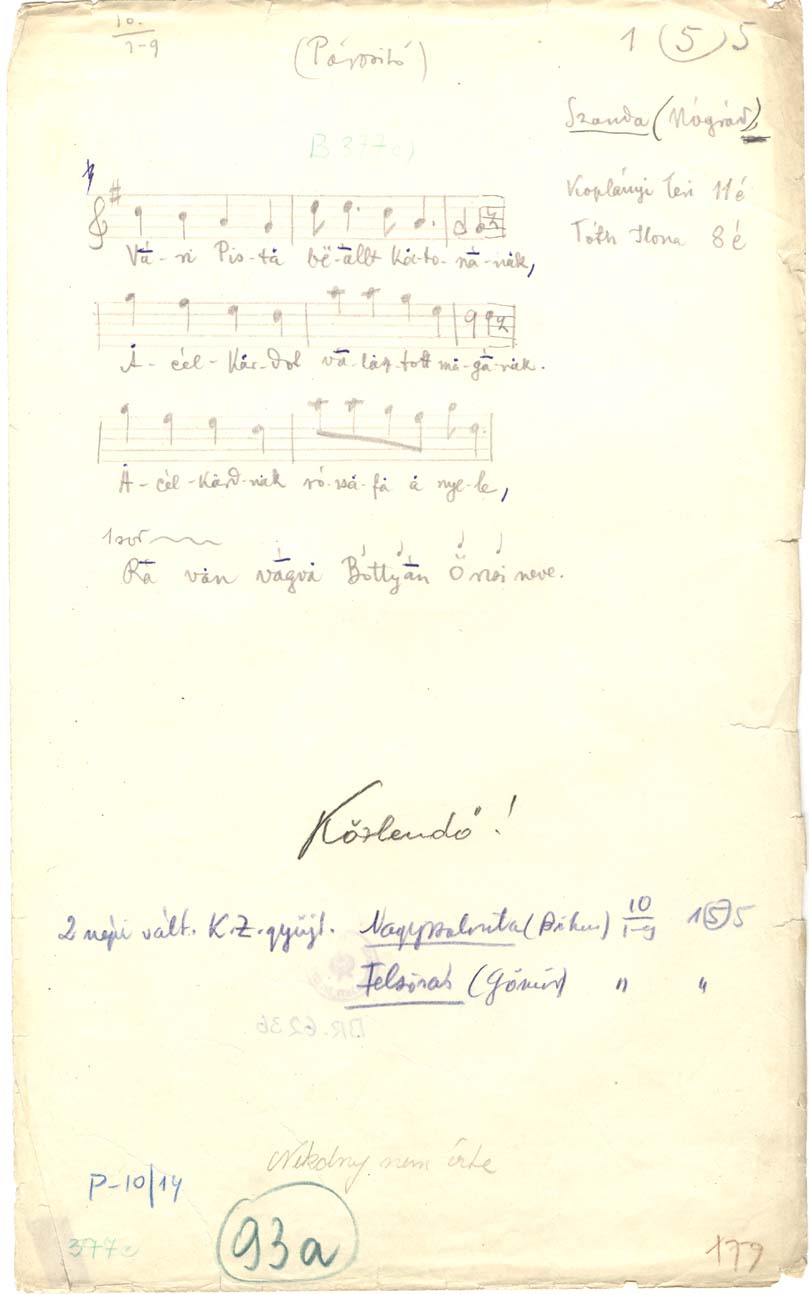 10.
1-9
(Párosító)
1 (5) 5
Szanda (Nógrád)
B 377c)
Koplányi Teri 11 é
Tóth Ilona 8 é
Vá - ri Pis - ta bë - állt ka - to - ná - nak,
A - cél - kar - dot vá - lasz - tott ma - gá - nak.
A - cél - kard - nak ró - zsa - fa a nye - le,
1 sor
Rá van vágva Bottyán Örzsi neve.
Közlendő!
2 népi vált. K.Z. gyűjt. Nagyszalonta (Bihar) 10/1-9 1 (5) 5
(Gömör) " "
BR. 6236
nem érte
P-10/14
377c
93a
179